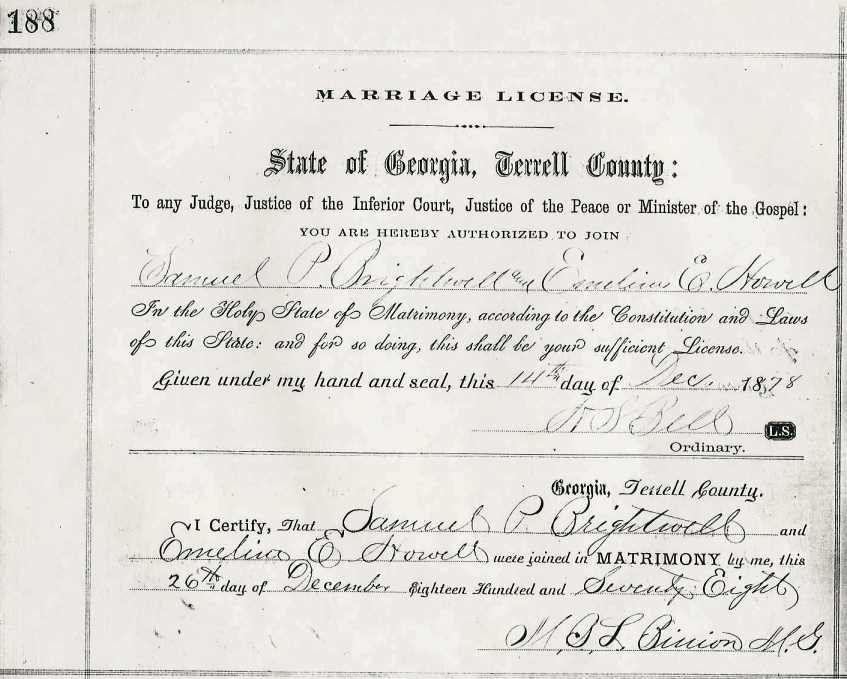 188
MARRIAGE LICENSE.
State of Georgia, Terrell County:
To any Judge, Justice of the Inferior Court, Justice of the Peace or Minister of the Gospel:
YOU ARE HEREBY AUTHORIZED TO JOIN
Samuel P. Brightwell and Emeline E. Howell
In the Holy State of Matrimony, according to the Constitution and Laws
of this State: and for so doing, this shall be your sufficient License.
Given under my hand and seal, this 14th day of Dec. 1878
Bell L.S.
Ordinary.
Georgia, Terrell County.
I Certify, That Samuel P. Brightwell and
Emeline E Howell were joined in MATRIMONY by me, this
26th day of December Eighteen Hundred and Seventy Eight
M. B. L. Binion M. G.